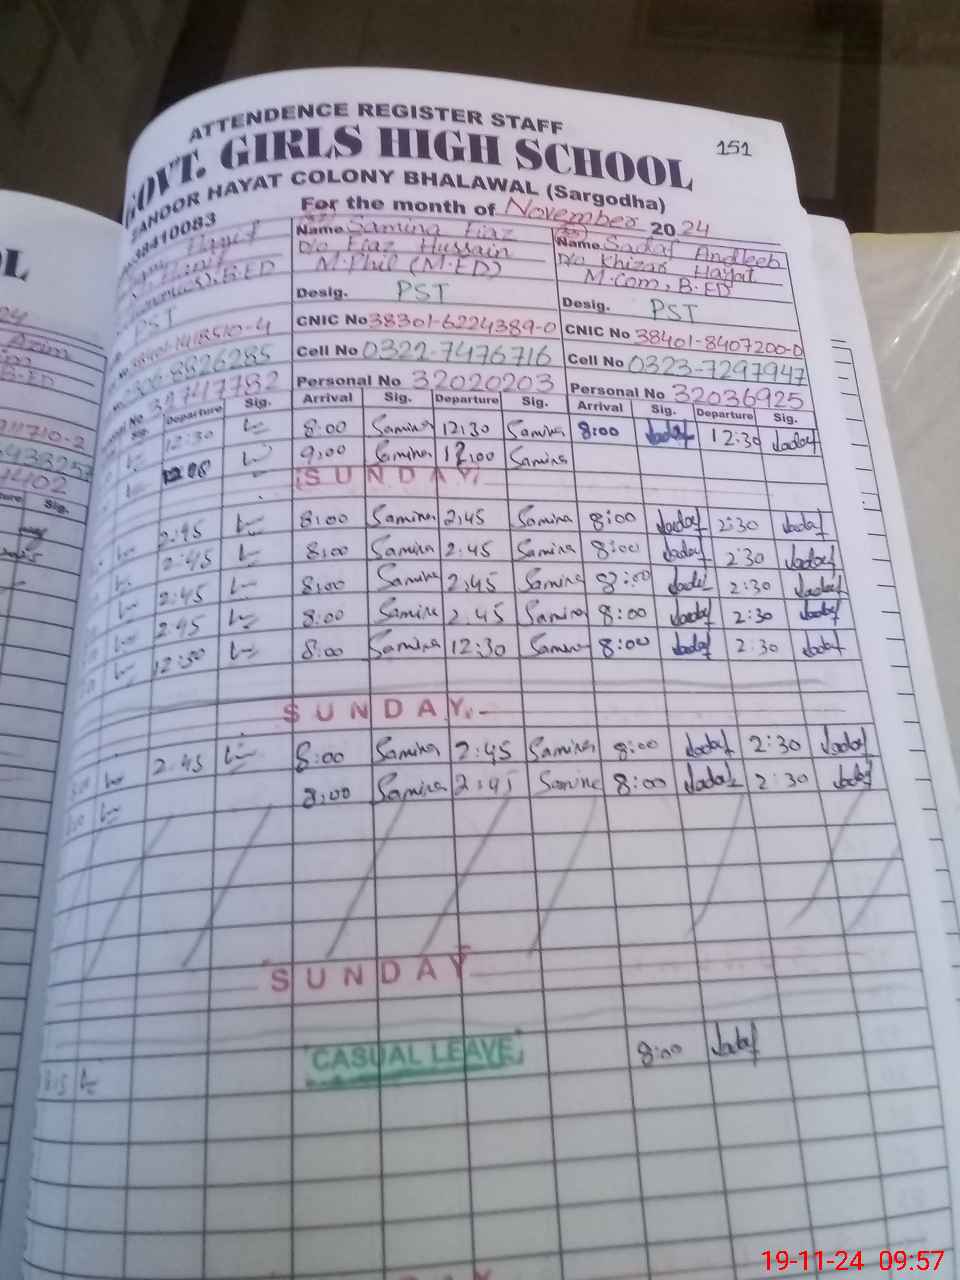 151
ATTENDENCE REGISTER STAFF
GOVT. GIRLS HIGH SCHOOL
HAYAT COLONY BHALAWAL (Sargodha)
38410083
For the month of November 2024
Name Samina Fiaz
D/o Fiaz Hussain
M.Phil (M.ED)
Desig. PST
CNIC No 38301-6224389-0
Cell No 0322-7476716
Personal No 32020203
Name Sadaf Andleeb
D/o Khizar Hayat
M.Com, B.ED
Desig. PST
CNIC No 38401-8407200-0
Cell No 0323-7297947
Personal No 32036925
B.ED
PST
Departure Sig. Arrival Sig. Departure Sig. Arrival Sig. Departure Sig.
12:30 8:00 Samina 12:30 Samina 8:00 Sadaf 12:30 Sadaf
9:00 Samina 12:00 Samina
SUNDAY
2:45 8:00 Samina 2:45 Samina 8:00 Sadaf 2:30 Sadaf
2:45 8:00 Samina 2:45 Samina 8:00 Sadaf 2:30 Sadaf
2:45 8:00 Samina 2:45 Samina 8:00 Sadaf 2:30 Sadaf
2:45 8:00 Samina 2:45 Samina 8:00 Sadaf 2:30 Sadaf
12:30 8:00 Samina 12:30 Samina 8:00 Sadaf 2:30 Sadaf
SUNDAY
2:45 8:00 Samina 2:45 Samina 8:00 Sadaf 2:30 Sadaf
8:00 Samina 2:45 Samina 8:00 Sadaf 2:30 Sadaf
SUNDAY
CASUAL LEAVE 8:00 Sadaf
19-11-24 09:57